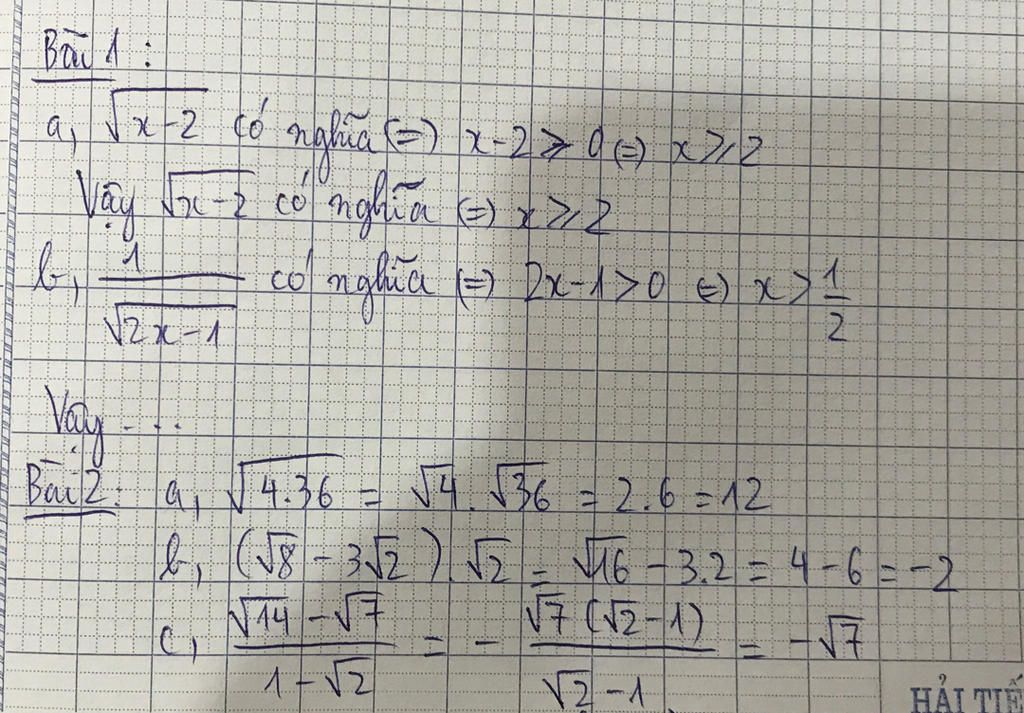 Bài 1:
a, √(x-2) có nghĩa (=) x-2 ≥ 0 (=) x ≥ 2
Vậy √(x-2) có nghĩa (=) x ≥ 2
b, 1/√(2x-1) có nghĩa (=) 2x-1 > 0 (=) x > 1/2
Vậy ....
Bài 2: a, √(4.36) = √4 . √36 = 2.6 = 12
b, (√8 - 3√2) . √2 = √16 - 3.2 = 4 - 6 = -2
c, (√14 - √7)/(1 - √2) = - (√7 (√2 - 1))/(√2 - 1) = -√7
HẢI TIẾ